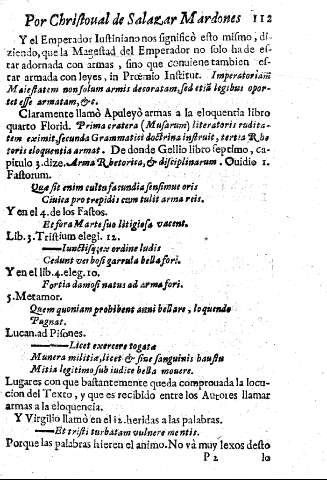 Por Christoual de Salazar Mardones 112
Y el Emperador Iustiniano nos significò esto mismo, di-
ziendo, que la Magestad del Emperador no solo ha de es-
tar adornada con armas, sino que conuiene tambien es-
tar armada con leyes, in Proœmio Institut. Imperatoriam
Maiestatem non solum armis decoratam, sed etiã legibus opor-
tet esse armatam, &c.
Claramente llamò Apuleyo armas a la eloquencia libro
quarto Florid. Prima cratera (Musarum) literatoris rudita-
tem eximit, secunda Grammatici doctrina instruit, tertia Rhe-
toris eloquentia armat. De donde Gellio libro septimo, ca-
pitulo 3. dize, Arma Rhetorica, & disciplinarum. Ouidio 1.
Fastorum.
Quæ sit enim cultu facundia sensimus oris
Ciuica pro trepidis cum tulit arma reis.
Y en el 4. de los Fastos.
Et fora Marte suo litigiosa vacent.
Lib. 3. Tristium elegi. 12.
Iunctisq; ex ordine ludis
Cedunt verbosi garrula bella fori.
Y en el lib. 4. eleg. 10.
Fortia damosi natus ad arma fori.
5. Metamor.
Quem quoniam prohibent anni bellare, loquendo
Pugnat.
Lucan. ad Pisones.
Licet exercere togatæ
Munera militiæ, licet & sine sanguinis haustu
Mitia legitimo sub iudice bella mouere.
Lugares con que bastantemente queda comprouada la locu-
cion del Texto, y que es recibido entre los Autores llamar
armas a la eloquencia.
Y Virgilio llamò en el 12. heridas a las palabras.
Et tristi turbatam vulnere mentis.
Porque las palabras hieren el animo. No và muy lexos desto
P 2 lo